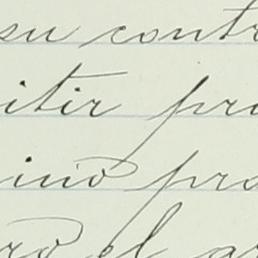 su contr
itir pro
ino pro
ro el ar